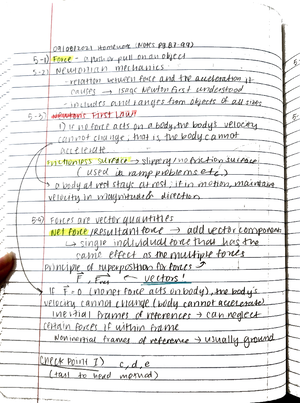 09/08/2021 Homework (Notes pg. 87-99)
5-1) Force - a push or pull on an object
5-2) Newtonian mechanics
- relation between force and the acceleration it
causes → Isaac Newton first understood
- includes and ranges from objects of all sizes
5-3) Newtons First Law:
1) If no force acts on a body, the body's velocity
cannot change, that is the body cannot
accelerate
frictionless surface → slippery no friction surface
(used in ramp problems etc.)
→ a body at rest stays at rest, if in motion, maintain
velocity in magnitude & direction
Forces are vector quantities
Net force/resultant force → add vector component
↳ single individual force that has the
same effect as the multiple forces
principle of superposition for forces
F, Fnet ← vectors!
If F = 0 (no net force acts on body), the body's
velocity cannot change (body cannot accelerate)
inertial frames of references → can neglect
certain forces if within frame
noninertial frames of reference → usually ground
Check Point 1) c, d, e
(tail to head method)